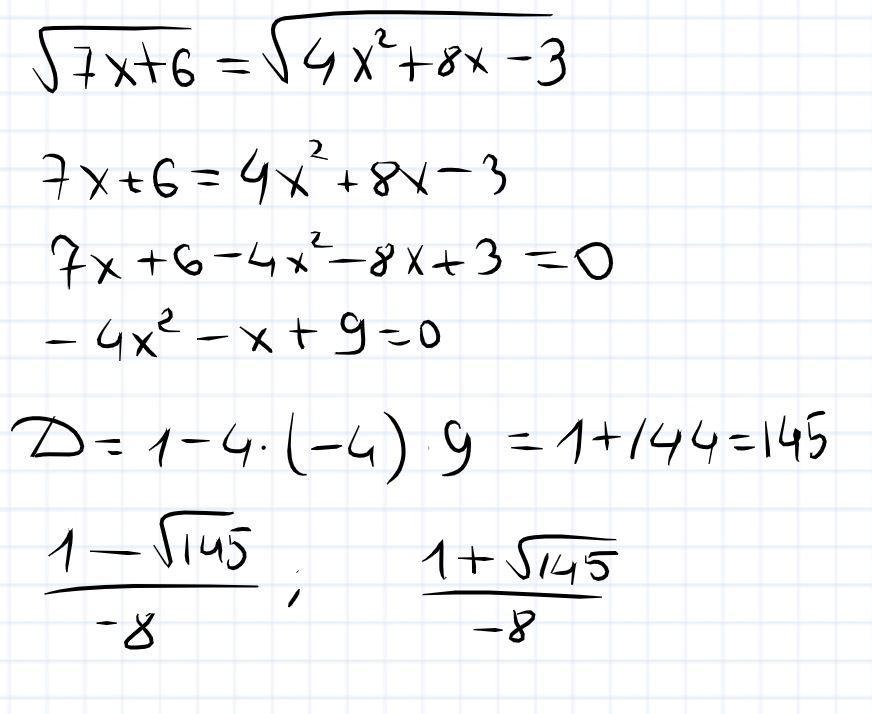 √(7x+6) = √(4x²+8x-3)
7x+6 = 4x²+8x-3
7x+6-4x²-8x+3=0
-4x²-x+9=0
D=1-4·(-4)·9=1+144=145
(1-√145)/(-8); (1+√145)/(-8)